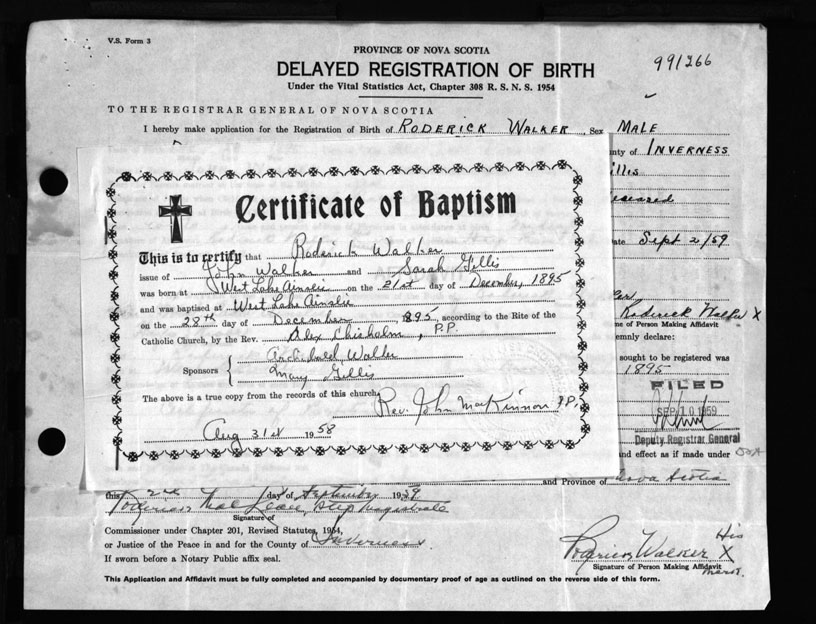 V.S. Form 3
PROVINCE OF NOVA SCOTIA
991266
DELAYED REGISTRATION OF BIRTH
Under the Vital Statistics Act, Chapter 308 R. S. N. S. 1954
TO THE REGISTRAR GENERAL OF NOVA SCOTIA
I hereby make application for the Registration of Birth of RODERICK WALKER, Sex MALE
nty of INVERNESS
illis
eceased
ate Sept 2/59
Certificate of Baptism
This is to certify that Roderick Walker
issue of John Walker and Sarah Gillis
was born at West Lake Ainslie on the 21st day of December, 1895
and was baptised at West Lake Ainslie
on the 28th day of December 1895, according to the Rite of the
Catholic Church, by the Rev. Alex Chisholm, P.P.
Sponsors
Archibald Walker
Mary Gillis
The above is a true copy from the records of this church,
Rev. John MacKinnon P.P.
Aug 31st 1958
Roderick Walker X
me of Person Making Affidavit
emnly declare:
sought to be registered was
1895
FILED
SEP 10 1959
Deputy Registrar General
nd effect as if made under
and Province of Nova Scotia
this 2nd day of September 1959
Roderick MacLean, Stip Magistrate
Signature of
Commissioner under Chapter 201, Revised Statutes, 1954,
or Justice of the Peace in and for the County of Inverness
If sworn before a Notary Public affix seal.
His
Roderick Walker X
Signature of Person Making Affidavit
mark.
This Application and Affidavit must be fully completed and accompanied by documentary proof of age as outlined on the reverse side of this form.